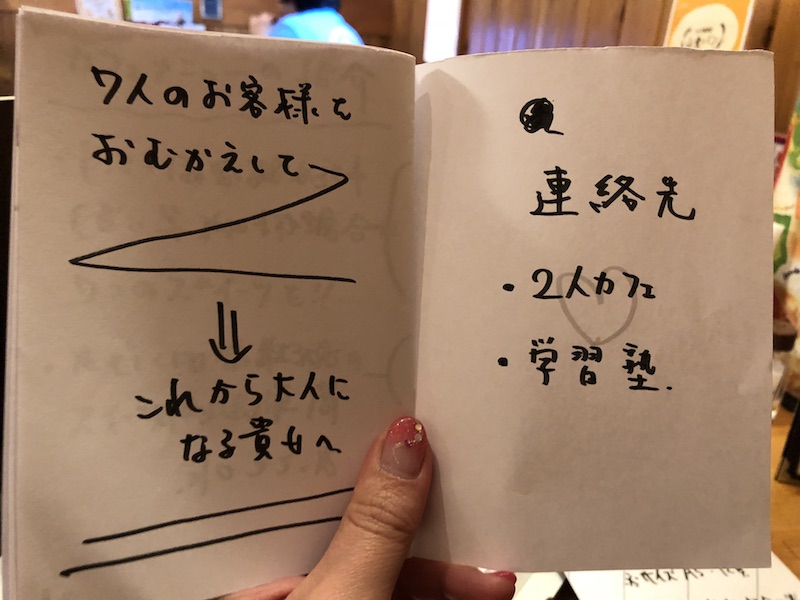 7人のお客様を
おむかえして
これから大人に
なる貴女へ
連絡先
・2人カフェ
・学習塾.